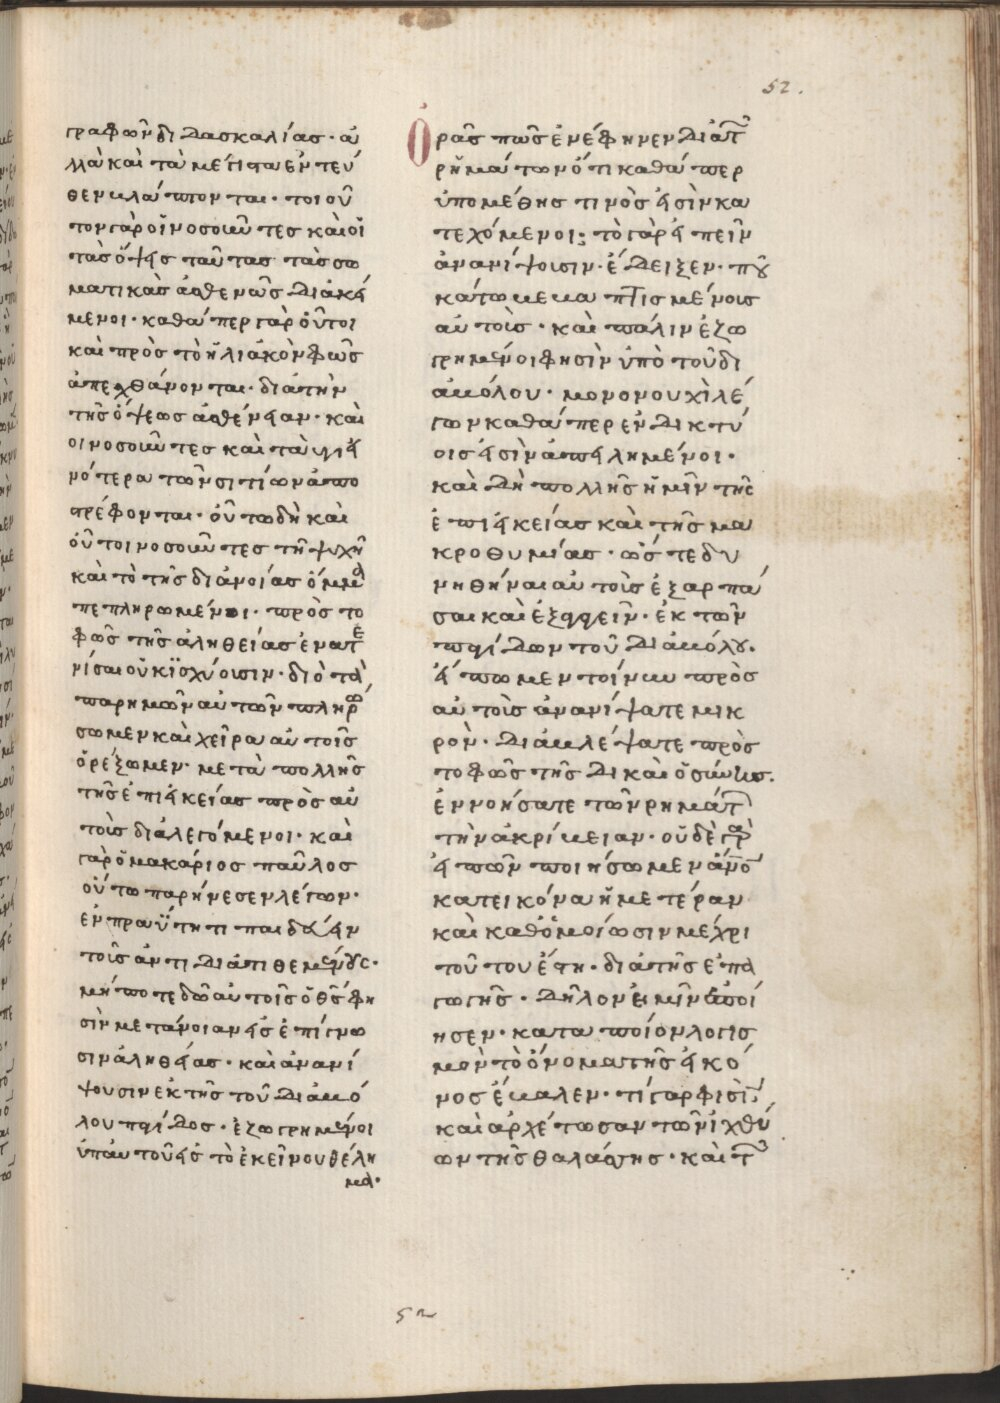 52.
γραφῶν διδασκαλίας· ἀ
λλὰ καὶ τὰ μέγιστα ἐντεῦ
θεν βλάπτονται· τοιοῦ
τον γὰρ οἱ νοσοῦντες καὶ οἱ
τὰς ὄψεις ταύτας τὰς σω
ματικὰς ἀσθενῶς διακεί
μενοι· καθάπερ γὰρ οὗτοι
καὶ πρὸς τὸ ἡλιακὸν φῶς
ἀπεχθάνονται· διὰ τὴν
τῆς ὄψεως ἀσθένειαν· καὶ
οἱ νοσοῦντες καὶ τὰ ὑγιει
νότερα τῶν σιτίων ἀπο
τρέφονται· οὕτω δὴ καὶ
οὗτοι νοσοῦντες τῇ ψυχῇ
καὶ τὸ τῆς διανοίας ὄμμα
πεπληρωμένοι· πρὸς τὸ
φῶς τῆς ἀληθείας ἐνατε
νίσαι οὐκ ἰσχύουσιν· διὸ τὰ
παρ ἡμῶν αὐτῶν πληρώ
σωμεν καὶ χεῖρα αὐτοῖς
ὀρέξωμεν· μετὰ πολλῆς
τῆς ἐπιεικείας πρὸς αὐ
τοῖς διαλεγόμενοι· καὶ
γὰρ ὁ μακάριος παῦλος
οὕτω παρήνεσεν λέγων·
ἐν πραΰτητι παιδεύειν
τοῖς ἀντιδιατιθεμένους·
μήποτε δῶ αὐτοῖς ὁ θς φη
σὶν μετάνοιαν εἰς ἐπίγνω
σιν ἀληθείας· καὶ ἀνανί
ψουσιν ἐκ τῆς τοῦ διαβό
λου παγίδος· ἐζωγρημένοι
ὑπαυτοῦ εἰς τὸ ἐκείνου θέλη
μα·
Ὁρᾶς πῶς ἐνέφηνεν διὰ τ
ρημάτων ὅτι καθάπερ
ὑπὸ μέθης τινὸς εἰσὶν κα
τεχόμενοι; τὸ γὰρ εἰπεῖν
ἀνανίψουσιν· ἔδειξεν· που
κάτω βεβαπτισμένους
αὐτοὺς· καὶ πάλιν ἐζω
γρημένοι φησὶν ὑπὸ τοῦ δι
αβόλου· μονονουχὶ λέ
γων καθάπερ ἐν δικτύ
οις εἰσὶν ἀπειλημένοι·
καὶ δὴ πολλῆς ἡμῖν τῆς
ἐπιεικείας καὶ τῆς μα
κροθυμίας· ὥστε δυ
νηθῆναι αὐτοὺς ἐξαρπά
σαι καὶ ἐξαγαγεῖν· ἐκ τῶν
παγίδων τοῦ διαβόλου·
εἴπωμεν τοίνυν πρὸς
αὐτοὺς ἀνανίψατε μικ
ρὸν· διαβλέψατε πρὸς
τὸ φῶς τῆς δικαιοσύνης.
ἐννοήσατε τῶν ρημάτ
τὴν ἀκρίβειαν· οὐδὲ γὰρ
εἰπὼν ποιήσωμεν ἄνον
κατεικόνα ἡμετέραν
καὶ καθομοίωσιν μέχρι
τούτου ἔστη· διὰ τῆς ἐπα
γωγῆς· δῆλον ἡμῖν ἐποί
ησεν· κατα ποῖον λογισ
μὸν τὸ ὄνομα τῆς εἰκό
νος ἔβαλεν· τί γάρ φησὶ;
καὶ ἀρχέτωσαν τῶν ἰχθύ
ων τῆς θαλάσσης· καὶ τ
52